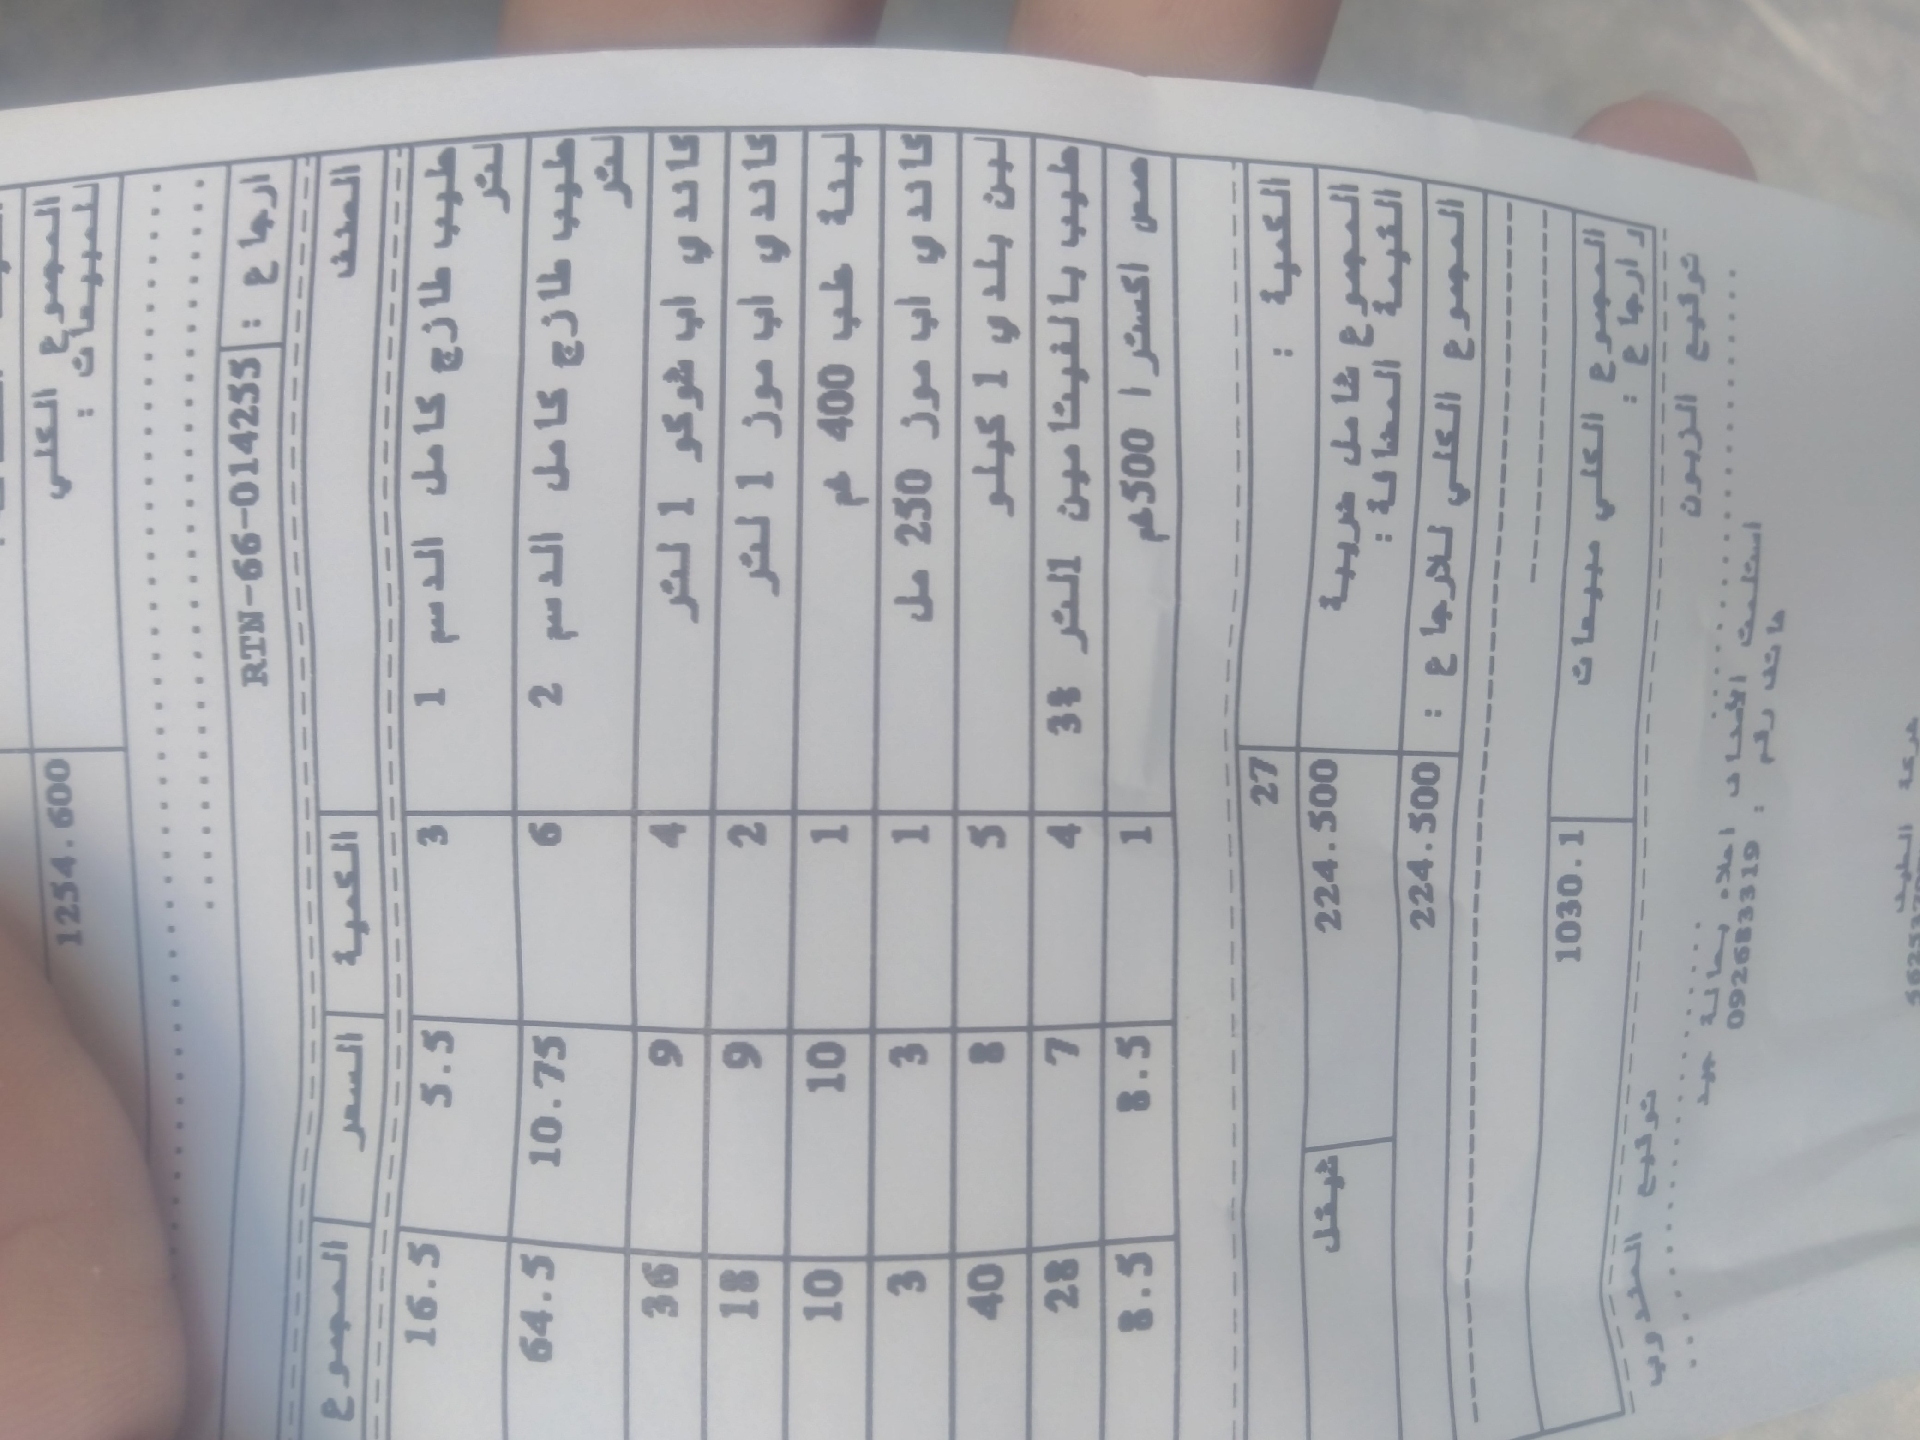 المجموع الكلي 1254.600
للمبيعات :
ارجاع : RTN-66-014255
الصنف الكمية السعر المجموع
حليب طازج كامل الدسم 1 3 5.5 16.5
لتر
حليب طازج كامل الدسم 2 6 10.75 64.5
لتر
كاندي اب شوكو 1 لتر 4 9 36
كاندي اب موز 1 لتر 2 9 18
لبدة طب 400 غم 1 10 10
كاندي اب موز 250 مل 1 3 3
لبن بلدي 1 كيلو 5 8 40
حليب بالفيتامين 1لتر 3% 4 7 28
حمص اكسترا 500غم 1 8.5 8.5
الكمية : 27
المجموع شامل ضريبة 224.500 شيقل
القيمة المضافة :
المجموع الكلي للارجاع : 224.500
المجموع الكلي مبيعات 1030.1
ارجاع :
توقيع الزبون توقيع المندوب
استلمت الاصناف اعلاه بحالة جيد
هاتف رقم : 092683319